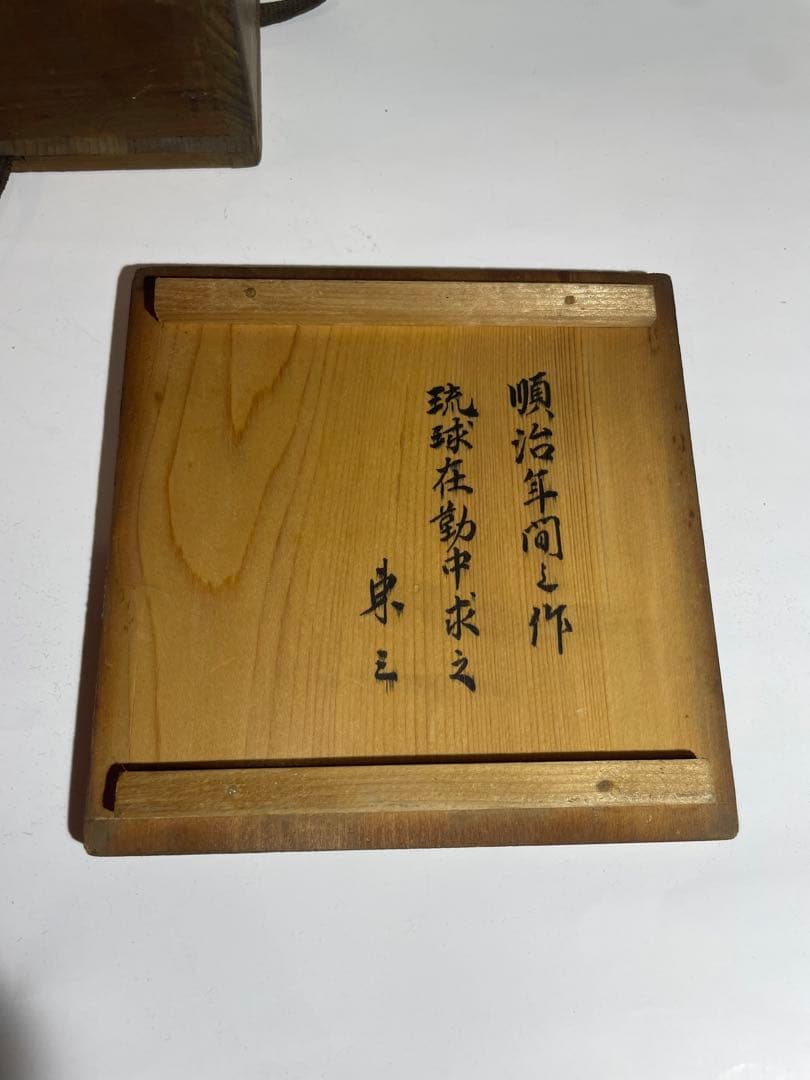 順治年間之作
琉球在勤中求之
東三